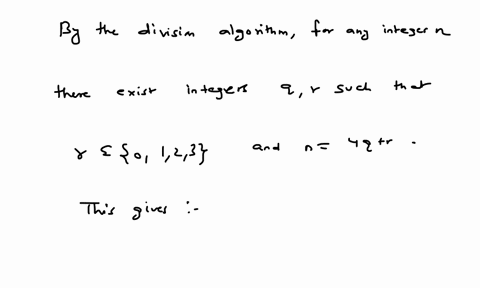 By the divisim algorithm, for any integer n
there exist integers q, r such that
r ∈ {0, 1, 2, 3} and n = 4q + r .
This gives :-